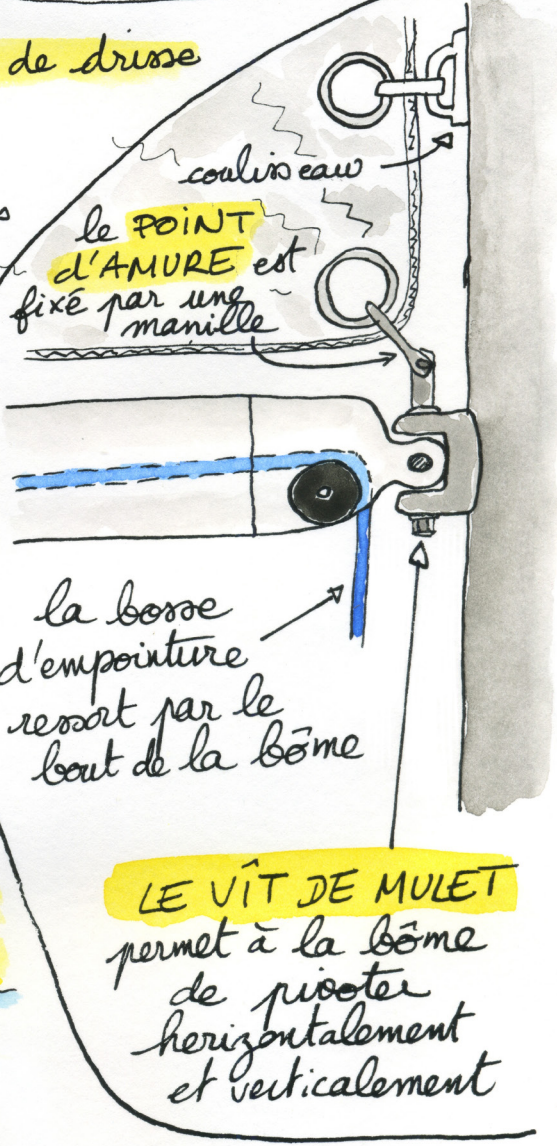 de drisse
coulisseau
le POINT
d'AMURE est
fixé par une
manille
la bosse
d'empointure
ressort par le
bout de la bôme
LE VÎT DE MULET
permet à la bôme
de pivoter
horizontalement
et verticalement